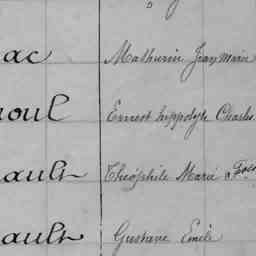 ac Mathurin Jean Marie
oul Ernest hippolyte Charles
ault Théophile Marie
ault Gustave Emile